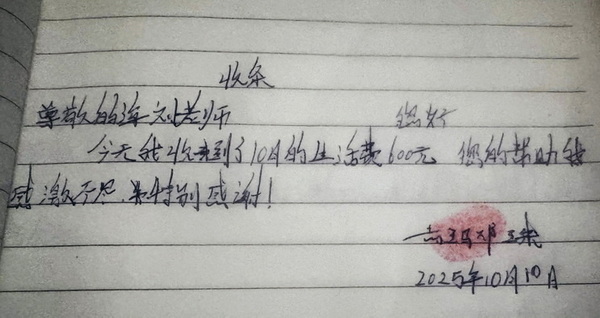 收条
尊敬的 老师 您好
今天我收到了10月的生活费600元 您的帮助我
感激不尽.特别感谢!
2025年10月10日